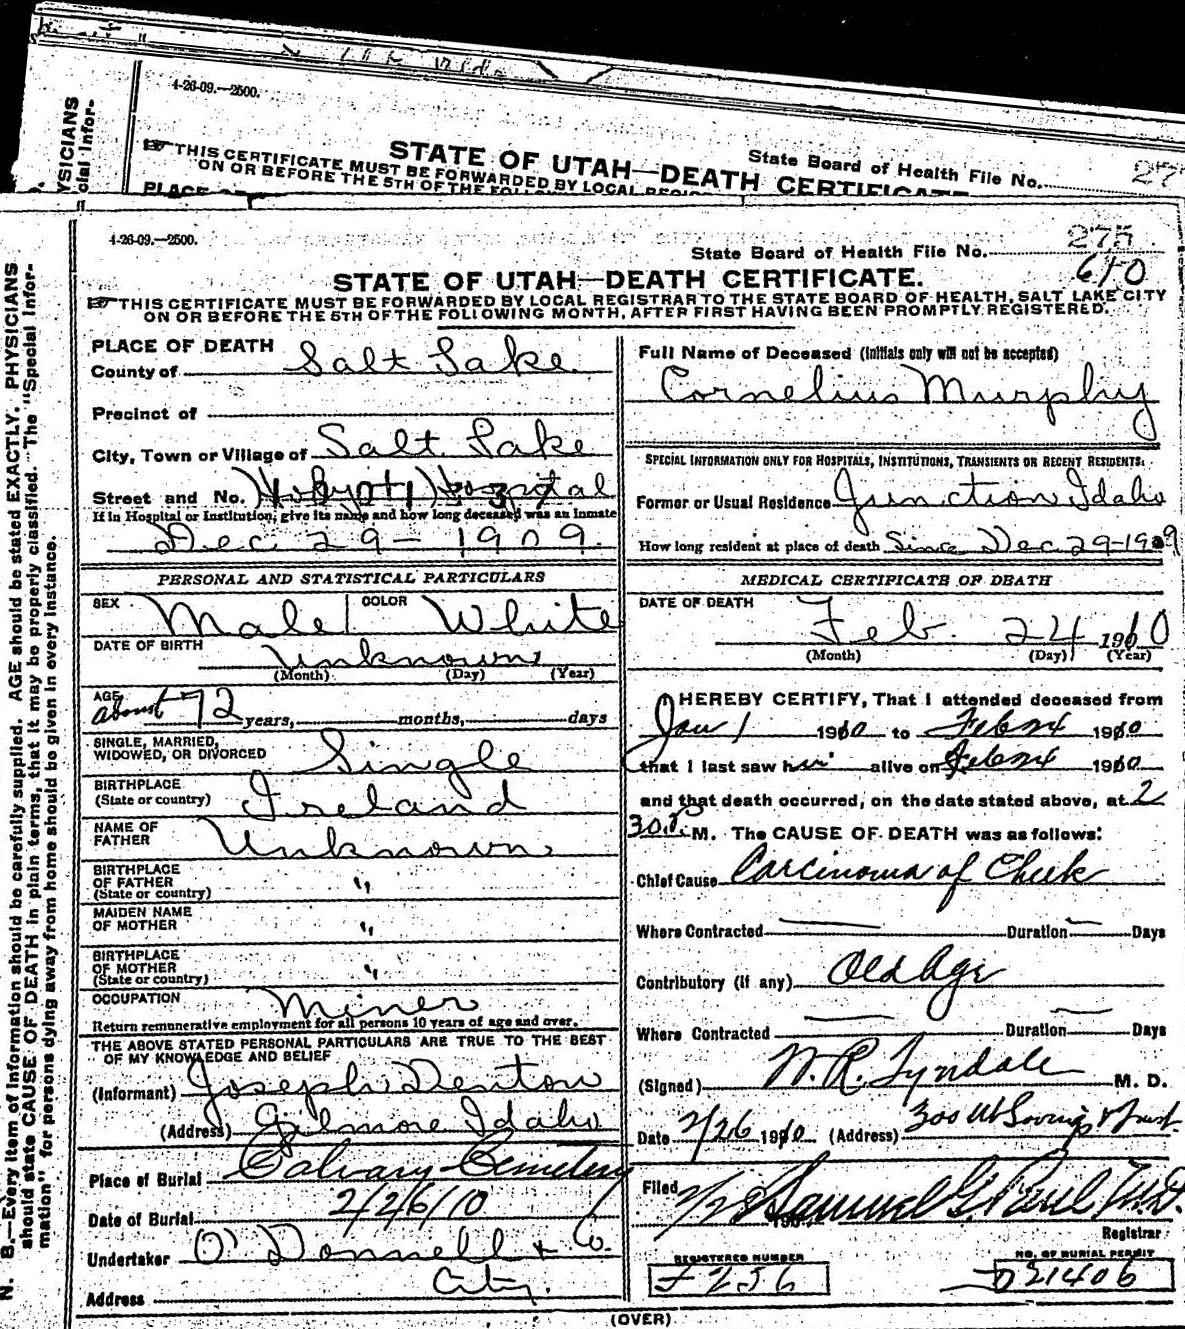 4-26-09.—2500.
STATE OF UTAH—DEATH CERTIFICATE
State Board of Health File No.
THIS CERTIFICATE MUST BE FORWARDED BY LOCAL
ON OR BEFORE THE 5TH OF THE
PLACE
4-26-09.—2500.
State Board of Health File No. 275
610
STATE OF UTAH—DEATH CERTIFICATE.
THIS CERTIFICATE MUST BE FORWARDED BY LOCAL REGISTRAR TO THE STATE BOARD OF HEALTH, SALT LAKE CITY
ON OR BEFORE THE 5TH OF THE FOLLOWING MONTH, AFTER FIRST HAVING BEEN PROMPTLY REGISTERED.
PLACE OF DEATH
County of Salt Lake
Precinct of
City, Town or Village of Salt Lake
Street and No. Hospital
If in Hospital or Institution, give its name and how long deceased was an inmate
Dec 29 - 1909.
PERSONAL AND STATISTICAL PARTICULARS
SEX Male COLOR White
DATE OF BIRTH Unknown
(Month) (Day) (Year)
AGE about 72 years, months, days
SINGLE, MARRIED,
WIDOWED, OR DIVORCED Single
BIRTHPLACE
(State or country) Ireland
NAME OF
FATHER Unknown
BIRTHPLACE
OF FATHER
(State or country) "
MAIDEN NAME
OF MOTHER "
BIRTHPLACE
OF MOTHER
(State or country) "
OCCUPATION Miner
Return remunerative employment for all persons 10 years of age and over.
THE ABOVE STATED PERSONAL PARTICULARS ARE TRUE TO THE BEST
OF MY KNOWLEDGE AND BELIEF
(Informant) Joseph Denton
(Address) Gilmore Idaho
Place of Burial Calvary Cemetery
Date of Burial 2/26/10
Undertaker O'Donnell & Co.
Address City.
Full Name of Deceased (Initials only will not be accepted)
Cornelius Murphy
SPECIAL INFORMATION ONLY FOR HOSPITALS, INSTITUTIONS, TRANSIENTS OR RECENT RESIDENTS.
Former or Usual Residence Junction Idaho
How long resident at place of death Since Dec 29-1909
MEDICAL CERTIFICATE OF DEATH
DATE OF DEATH
Feb. 24 1910
(Month) (Day) (Year)
I HEREBY CERTIFY, That I attended deceased from
Jan 1 1910 to Feb 24 1910
that I last saw him alive on Feb 24 1910
and that death occurred, on the date stated above, at 2
30 P. M. The CAUSE OF DEATH was as follows:
Chief Cause Carcinoma of Cheek
Where Contracted — Duration — Days
Contributory (if any) Old Age
Where Contracted — Duration — Days
(Signed) W. R. Tyndale M. D.
Date 2/26 1910 (Address) 300
Filed
Registrar
REGISTERED NUMBER
F 256
NO. OF BURIAL PERMIT
D 21406
(OVER)
N. B.—Every item of Information should be carefully supplied. AGE should be stated EXACTLY. PHYSICIANS
should state CAUSE OF DEATH in plain terms, that it may be properly classified. The "Special Infor-
mation" for persons dying away from home should be given in every instance.